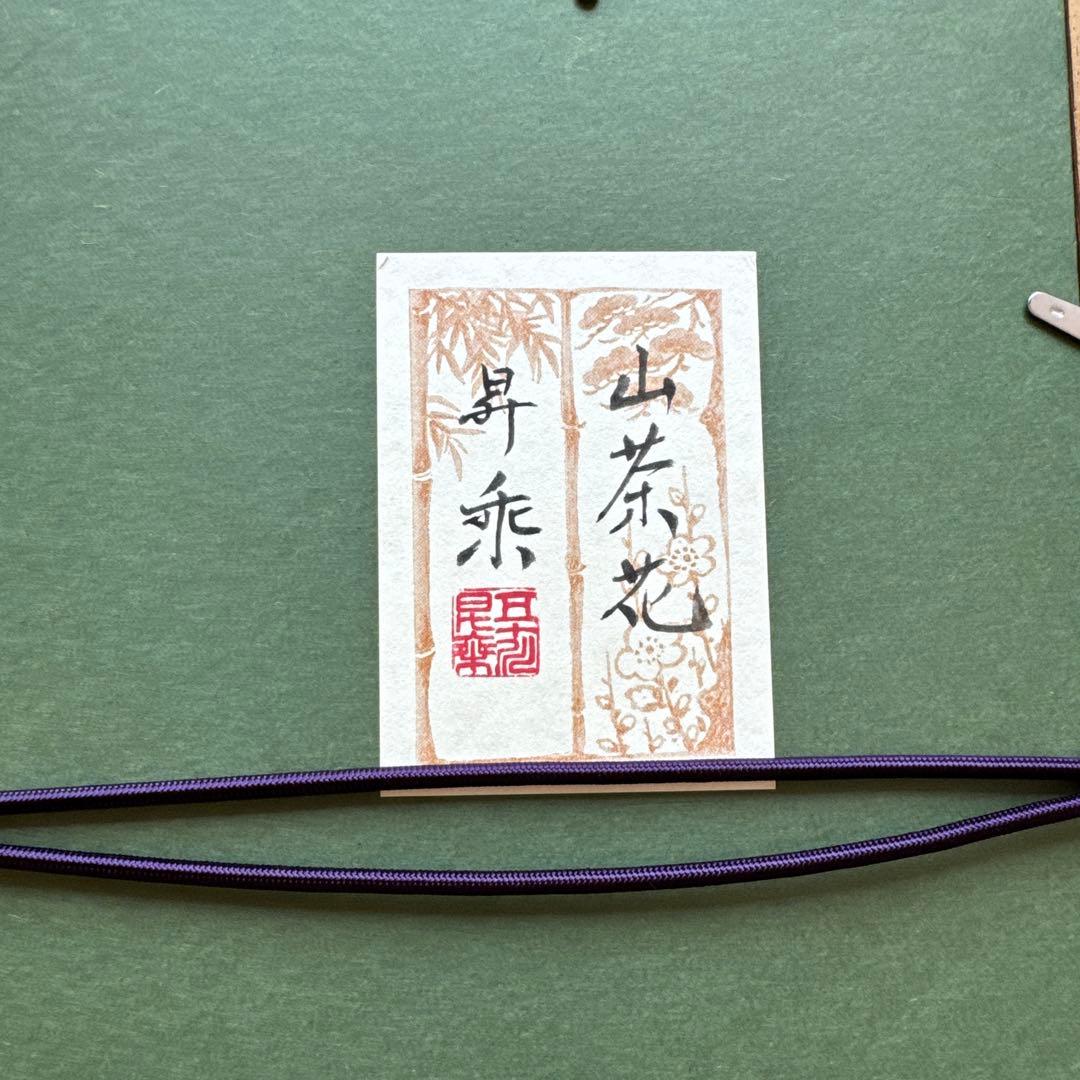 山茶花
昇乘